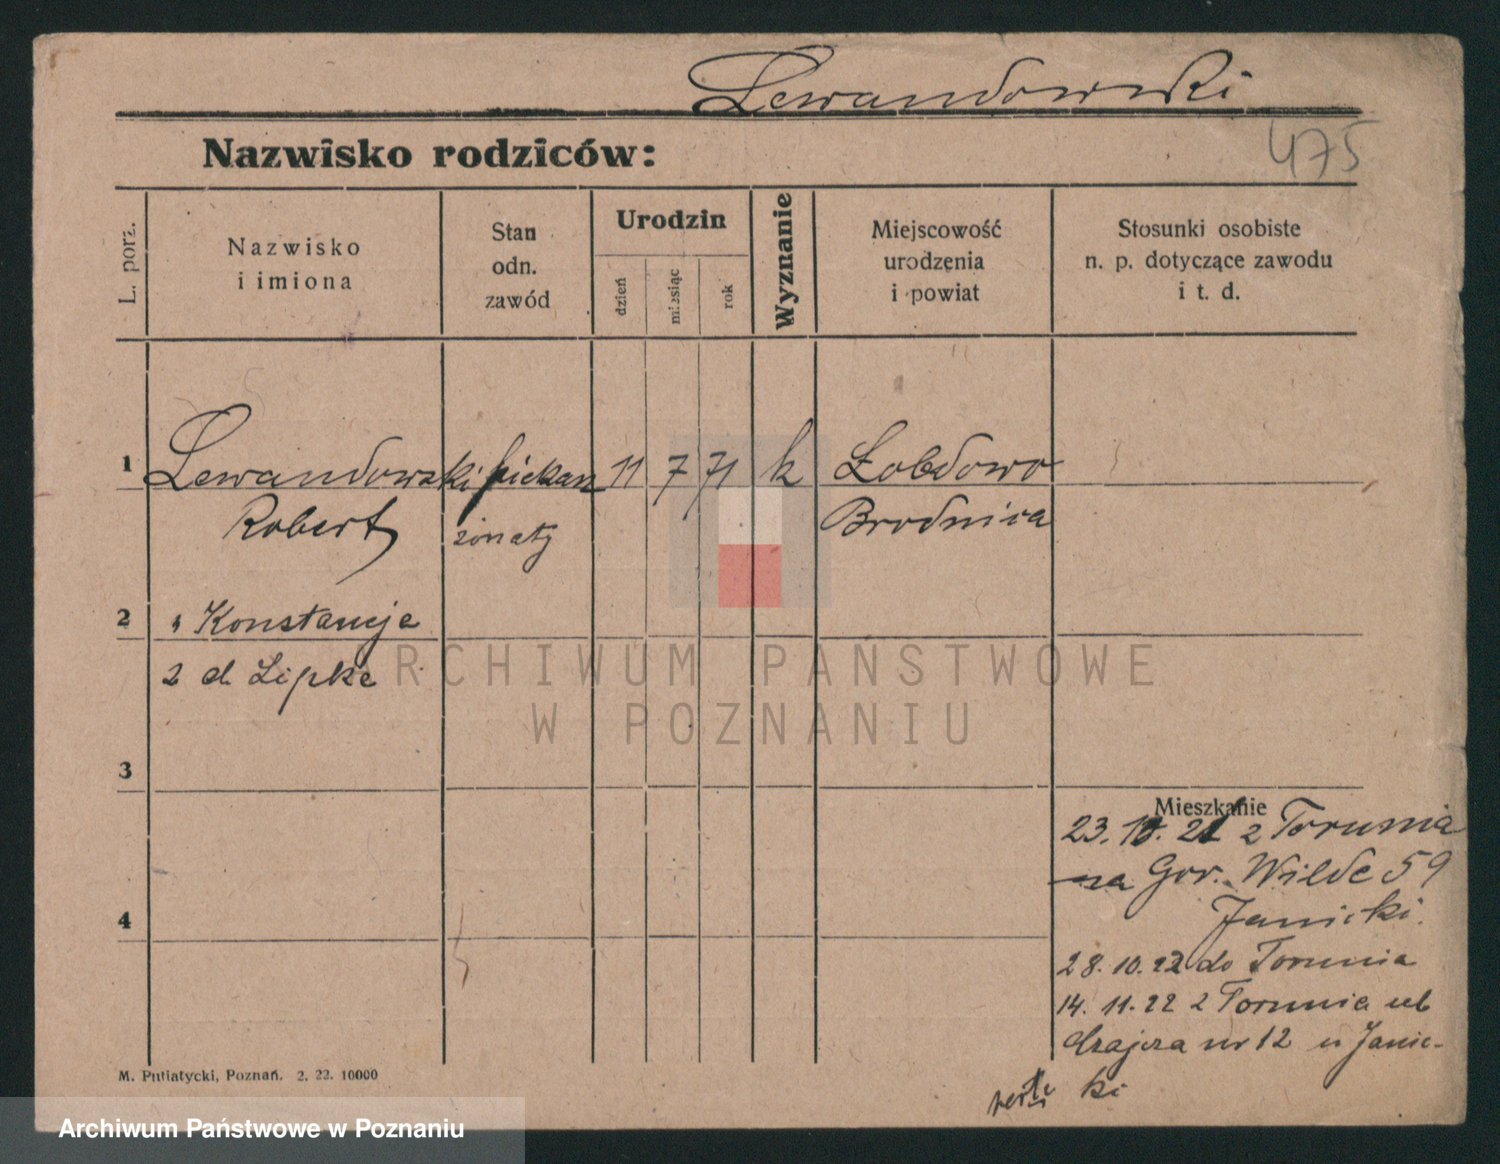 Lewandowski
475
Nazwisko rodziców:
L. porz.
Nazwisko
i imiona
Stan
odn.
zawód
Urodzin
dzień
miesiąc
rok
Wyznanie
Miejscowość
urodzenia
i powiat
Stosunki osobiste
n. p. dotyczące zawodu
i t. d.
1 Lewandowski piekarz 11 7 71 k Łobdowo
Robert żonaty Brodnica
2 Konstancja
z d Lipke
3
Mieszkanie
23. 22 z Torunia
na Gór. Wilde 59
Janicki.
4
28. 10. 22 do Torunia
14. 11. 22 z Torunia ul
Czajcza nr 12 u Janic-
ki
M. Putiatycki, Poznań. 2. 22. 10000
ARCHIWUM PAŃSTWOWE
W POZNANIU
Archiwum Państwowe w Poznaniu